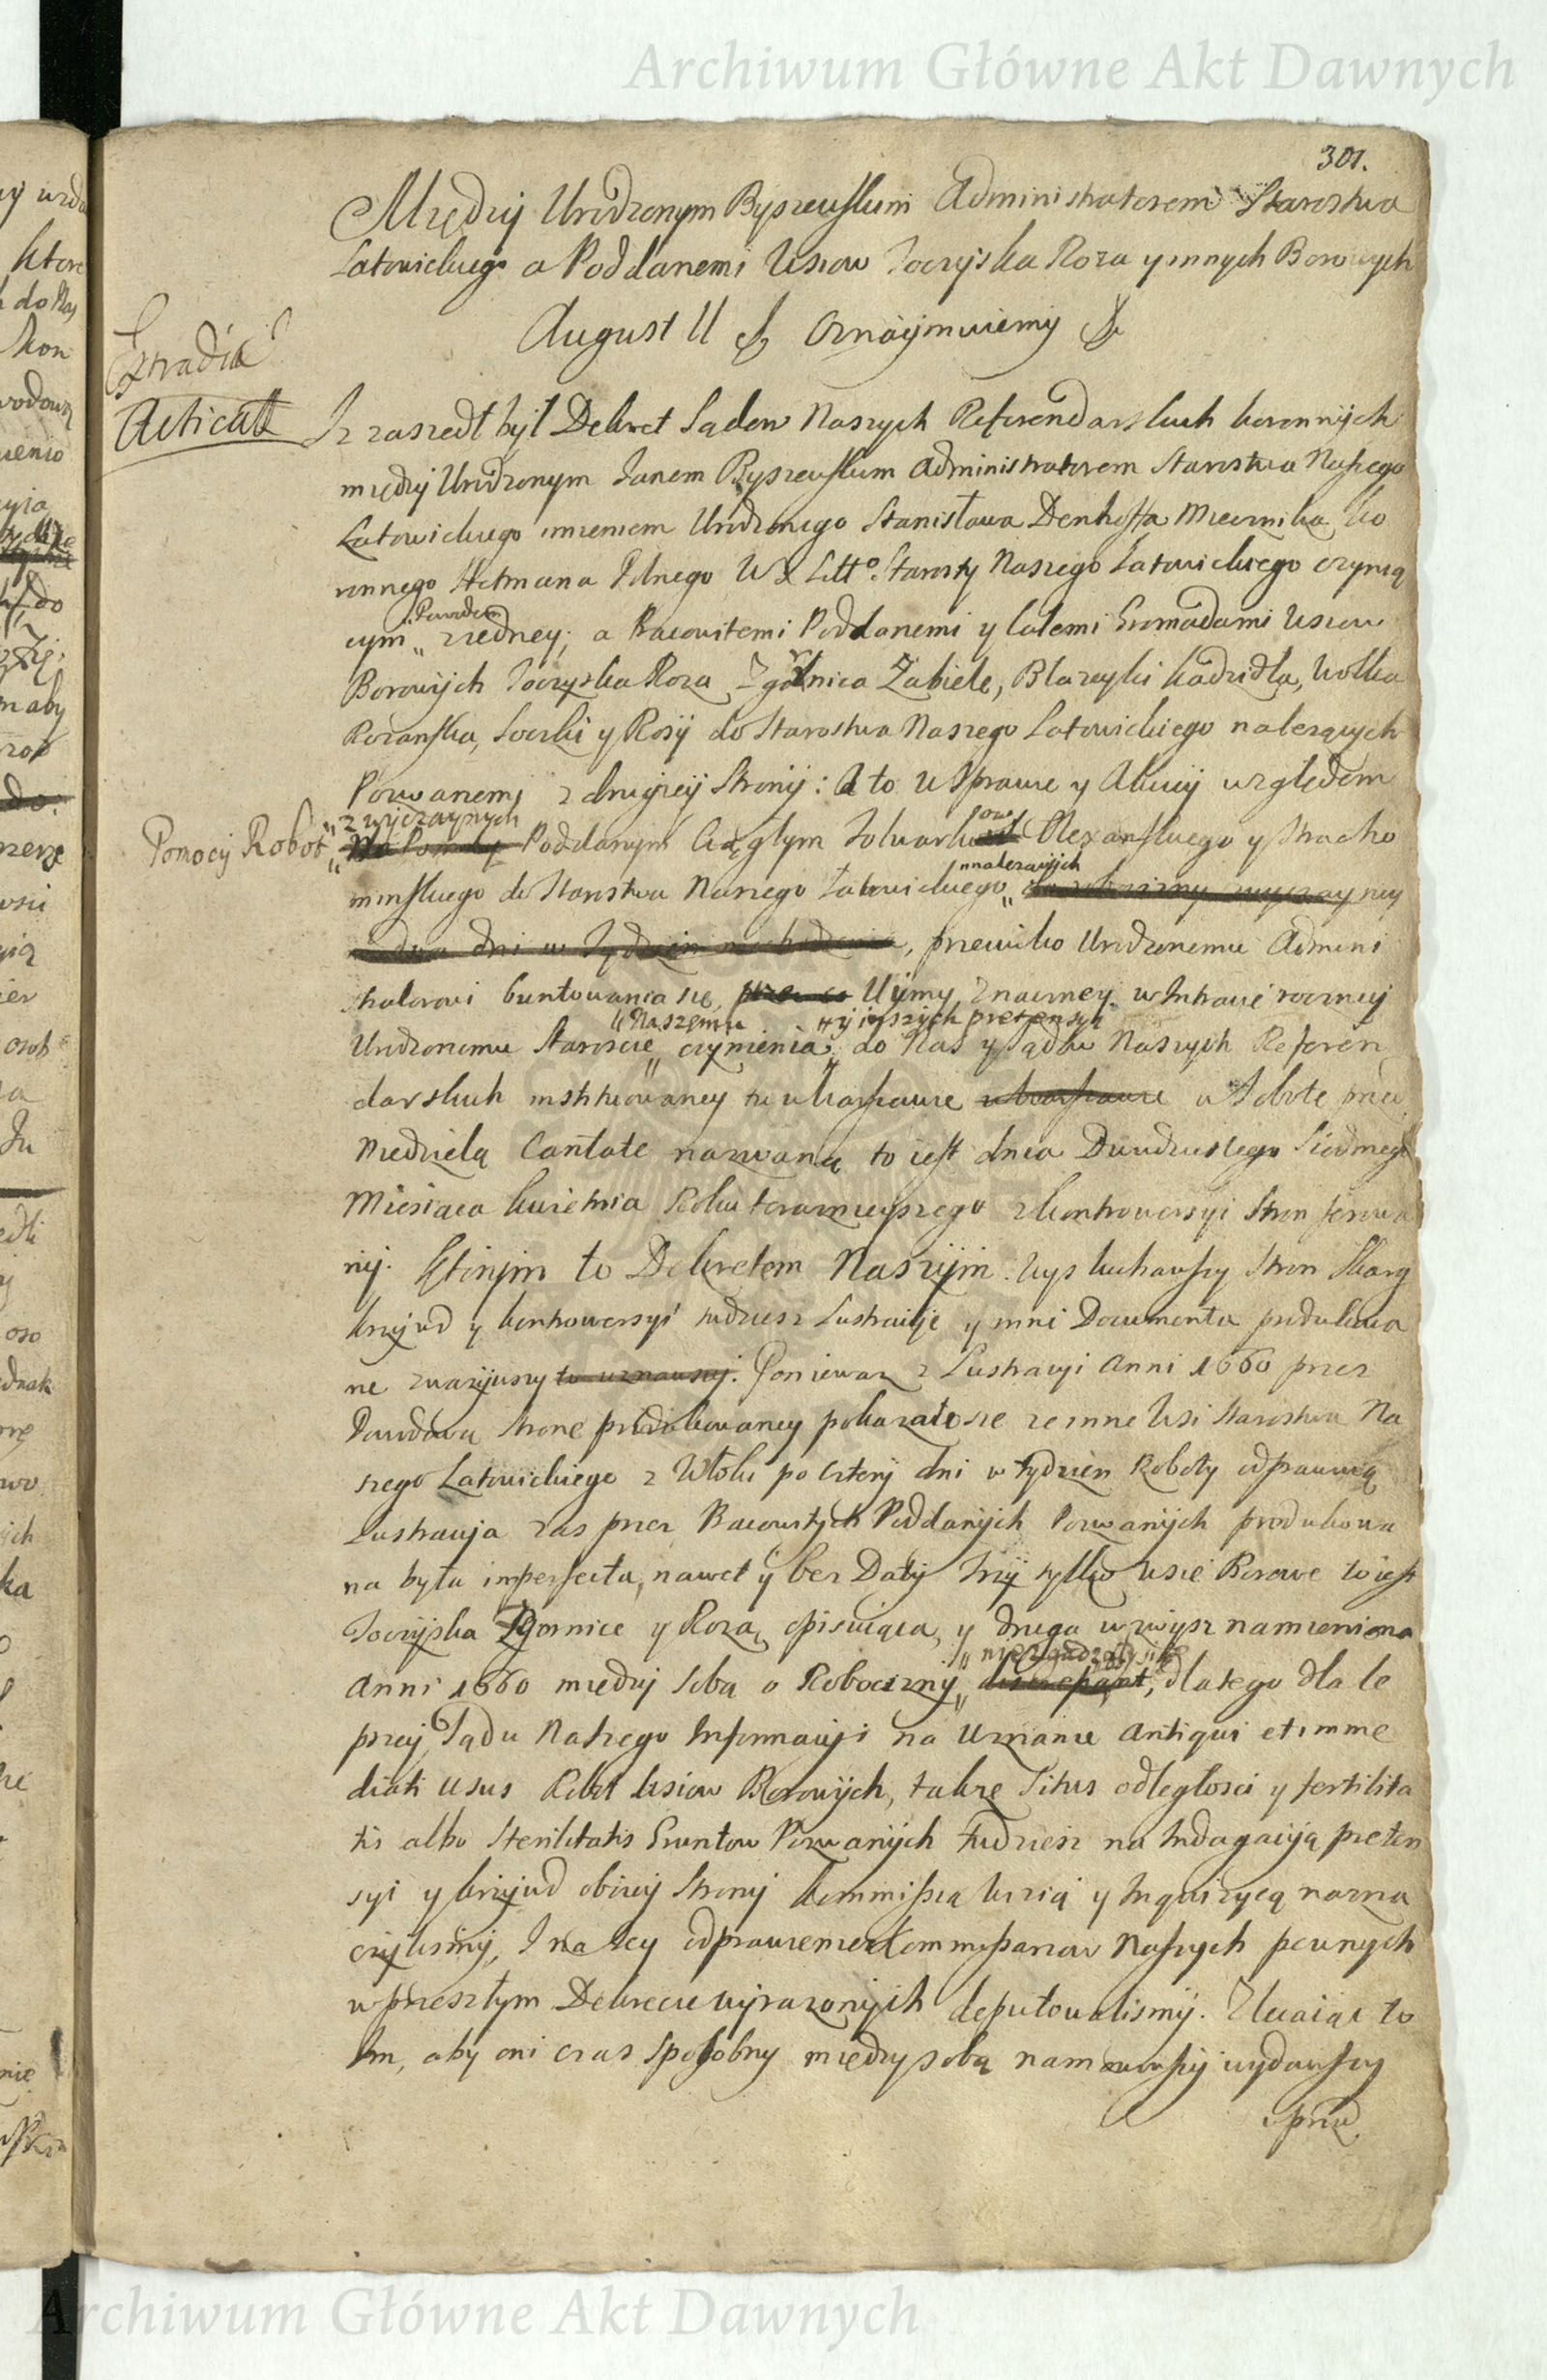 Archiwum Główne Akt Dawnych
301.
Między Urodzonym Byszewskim Administratorem Starostwa
Latowickiego a Poddanemi Wsiow Joczyska Roza y innych Borowych
August II & Oznaymuiemy &
Extradita
Acticat
Iz zaszedł był Dekret Sądow Naszych Referendarskich koronnych
między Urodzonym Janem Byszewskim Administratorem Starostwa Naszego
Latowickiego imieniem Urodzonego Stanisława Denhoffa Miecznika Ko
ronnego Hetmana Polnego W X Litto. Starosty Naszego Latowickiego czynią
cym „Powodem„ z iedney, a Pracowitemi Poddanemi y całemi Gromadami Wsiow
Borowych Joczyska Roza, Zgornica Zabiele, Blazeyki Kadzidła, Wolka
Rożanska, Soczki y Rosy do Starostwa Naszego Latowickiego nalezących
Pozwanemi z drugiey Strony: A to w Sprawie y Akcyi względem
Pomocy Robot „zwyczaynych
Poddanym Ciągłym Folwarkow Olexanskiego y Stracho
minskiego do Starostwa Naszego Latowickiego „nalezącyich
dwa dni w Tydzien, przeciwko Urodzonemu Admini
stratorowi buntowania się, Uymy znaczney w Intracie roczney
Urodzonemu Staroscie „Naszemu„ czynienia „y inszych pretensyi do Nas y Sądow Naszych Referen
darskich instituowaney tu w Warszawie w Warszawie w Sobote przed
Niedzielą Cantate nazwaną to iest dnia Dwudziestego Siodmego
Miesiąca Kwietnia Roku teraznieyszego z kontrowersyi Stron ferowa
ny. Ktorym to Dekretem Naszym Wysłuchawszy Stron Skarg
krzywd y kontrowersyi tudziesz Lustracyie y inni Documenta produkowa
ne zwazywszy to uznawszy. Poniewaz z Lustracyi Anni 1660 przez
Powodową Strone produkowaney pokazało sie ze inne Wsi Starostwa Na
szego Latowickiego z Włoki po cztery dni w tydzien Roboty odprawuią
Lustracyia zas przez Pracowitych Poddanych Pozwanych produkowa
na była imperfecta, nawet y bez Daty Trzy tylko wsie Borowe to iest
Joczyska Zgornice y Roza, opisuiąca, y druga w zwysz namieniona
Anni 1660 między sobą o Robocizny „nie zgadzały się discrepant, dlatego dla le
pszey Sądu Naszego Informacyi na Uznanie antiqui et imme
diati usus Robot Wsiow Borowych, także Situs odległosci y fertilita
tis albo Sterilitatis Gruntow Pozwanych tudziesz na Indagacyią preten
syi y krzywd obiey Strony kommissią Wizią y Inquizycią nazna
czylismy, I na tey odprawienie Kommissarzow Naszych pewnych
w przeszłym Dekrecie wyrazonych deputowalismy. Zlecaiąc to
Im, aby oni czas sposobny między sobą namowiwszy wydawszy
wprzod
Archiwum Główne Akt Dawnych